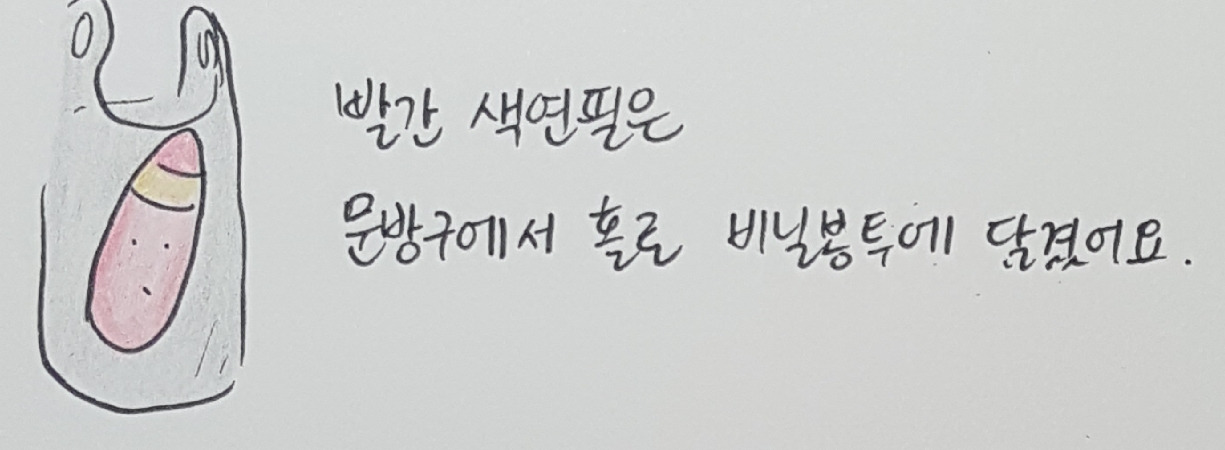 빨간 색연필은
문방구에서 홀로 비닐봉투에 담겼어요.